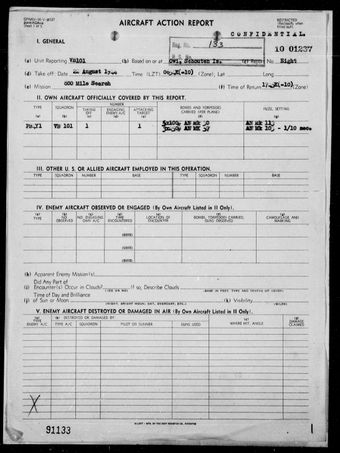 AIRCRAFT ACTION REPORT
RESTRICTED
CONFIDENTIAL
I. GENERAL
Reg. No. 133
10 01237
(a) Unit Reporting VB101 (b) Based on or at Owi, Schouten Is. (c) Report No. Eight
(d) Take off: Date 22 August 1944 Time (LZT) (Zone); Lat. Long.
(e) Mission 800 Mile Search (f) Time of Return (Zone)
II. OWN AIRCRAFT OFFICIALLY COVERED BY THIS REPORT.
TYPE SQUADRON NUMBER BOMBS AND TORPEDOES CARRIED (PER PLANE) FUZE, SETTING
TAKING OFF ENGAGING ENEMY A/C ATTACKING TARGET
PB4Y1 VB 101 1 1
III. OTHER U. S. OR ALLIED AIRCRAFT EMPLOYED IN THIS OPERATION.
TYPE SQUADRON NUMBER BASE TYPE SQUADRON NUMBER BASE
IV. ENEMY AIRCRAFT OBSERVED OR ENGAGED (By Own Aircraft Listed in II Only).
(a) TYPE (b) NO. OBSERVED (c) NO. ENGAGING OWN A/C (d) TIME ENCOUNTERED (e) LOCATION OF ENCOUNTER (f) BOMBS, TORPEDOES CARRIED; GUNS OBSERVED (g) CAMOUFLAGE AND MARKING
(ZONE)
(ZONE)
(ZONE)
(h) Apparent Enemy Mission(s)
Did Any Part of
(i) Encounter(s) Occur in Clouds? If so, Describe Clouds
(YES OR NO) (BASE IN FEET, TYPE AND TENTHS OF COVER)
Time of Day and Brilliance
(j) of Sun or Moon (k) Visibility
(NIGHT, BRIGHT MOON; DAY, OVERCAST; ETC.) (MILES)
V. ENEMY AIRCRAFT DESTROYED OR DAMAGED IN AIR (By Own Aircraft Listed in II Only).
(a) TYPE ENEMY A/C (b) DESTROYED OR DAMAGED BY: (c) WHERE HIT, ANGLE (d) DAMAGE CLAIMED
TYPE A/C SQUADRON PILOT OR GUNNER GUNS USED
X
91133